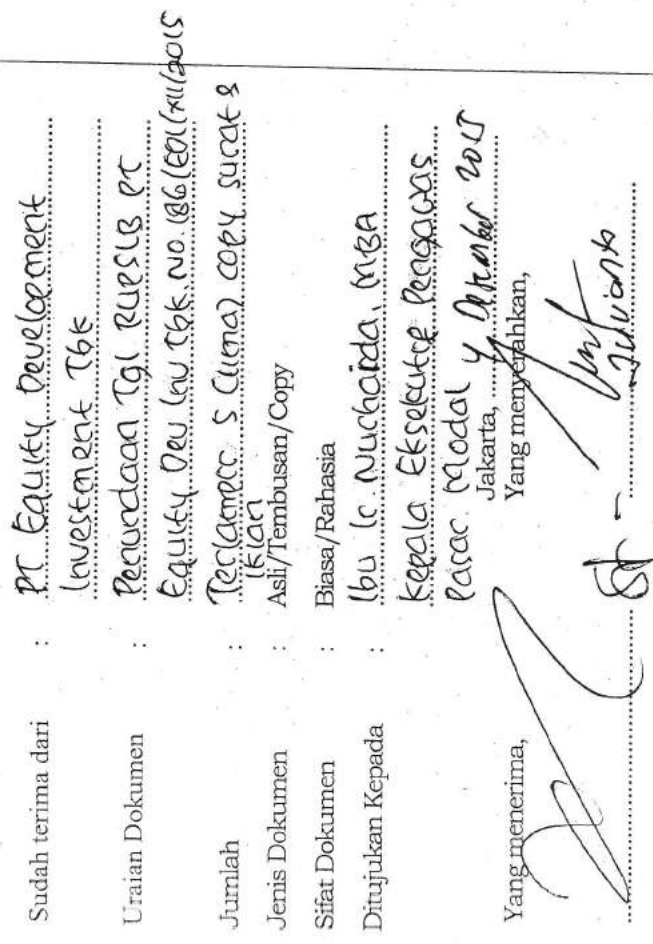 Sudah terima dari : PT Equity Development
Investment Tbk
Uraian Dokumen : Penundaan Tgl RUPSLB PT
Equity Dev Inv Tbk. No. 186/EDI/XII/2015
Jumlah : Terlampir 5 (lima) copy surat &
iklan
Jenis Dokumen : Asli/Tembusan/Copy
Sifat Dokumen : Biasa/Rahasia
Ditujukan Kepada : Ibu Ir. Nurhaida, MBA
Kepala Eksekutif Pengawas
Pasar Modal
Jakarta, 4 Desember 2015
Yang menerima, Yang menyerahkan,